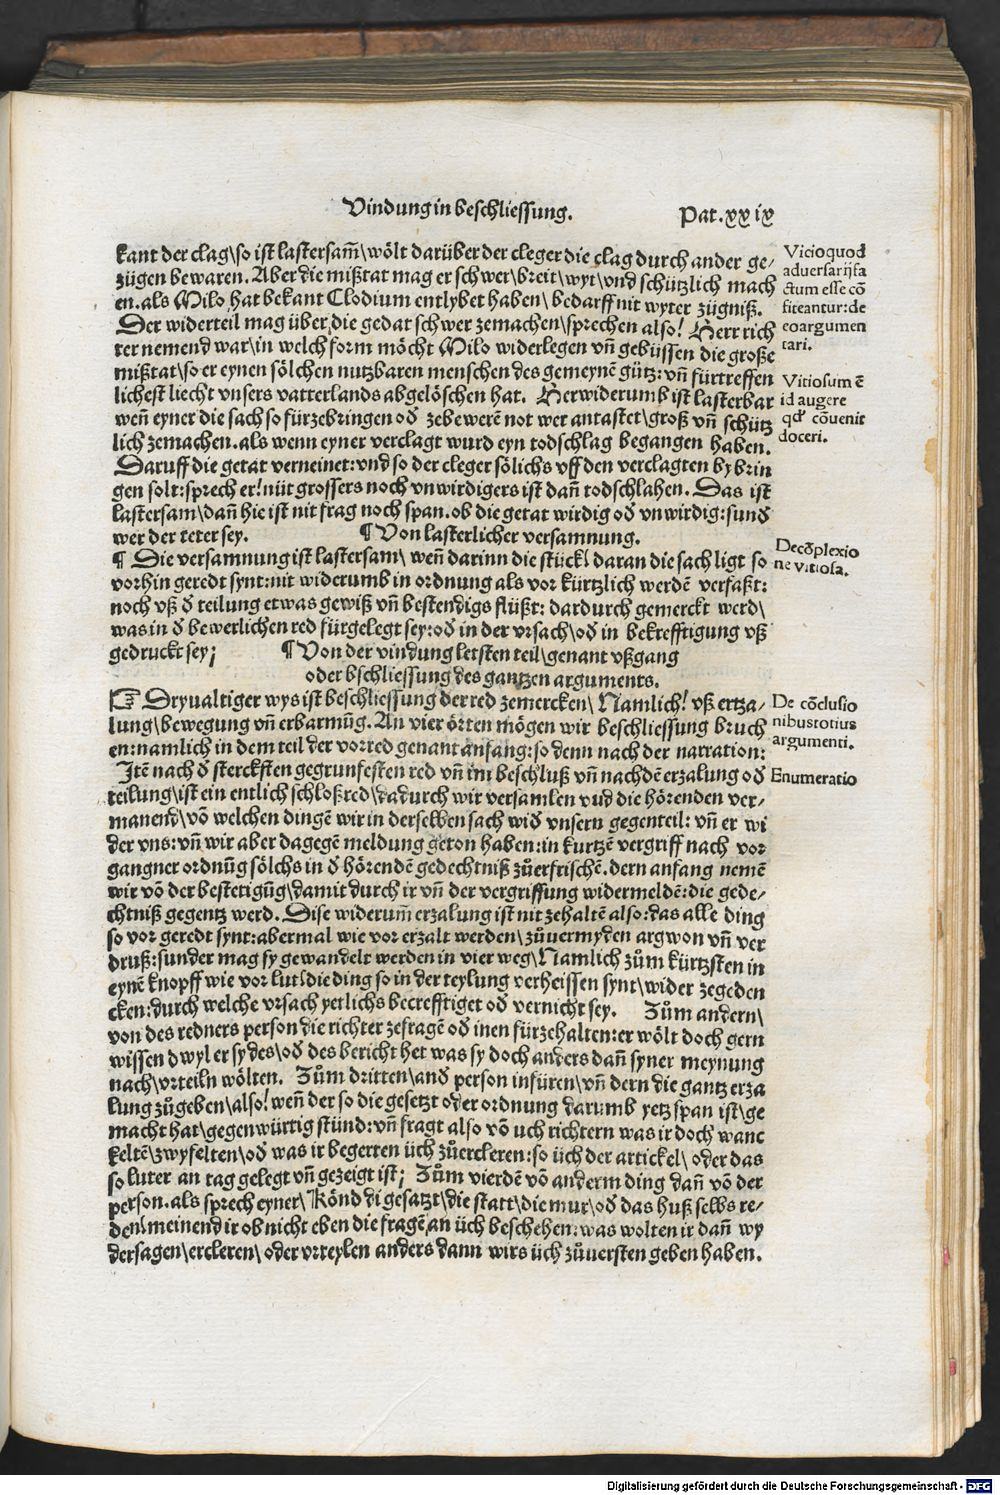 Vindung in beschliessung. Pat. xxix
kant der clag\so ist lastersam̃\wölt darüber der cleger die clag durch ander ge⸗
zügen bewaren. Aber die mißtat mag er schwer\breit\wyt\vnd schützlich mach
en. als Milo hat bekant Clodium entlybet haben\ bedarff nit wyter zügniß.
Der widerteil mag über die gedat schwer zemachen\sprechen also! Herr rich
ter nemend war\in welch form möcht Milo widerlegen vñ gebüssen die große
mißtat\so er eynen sölchen nutzbaren menschen des gemeynē gütz: vñ fürtreffen
lichest liecht vnsers vatterlands abgelöschen hat. Herwiderumb ist lasterbar
weñ eyner die sach so fürzebringen oď zebewerē not wer antastet\groß vñ schütz
lich zemachen. als wenn eyner verclagt wurd eyn todschlag begangen haben.
Daruff die getat verneinet: vnd so der cleger sölichs vff den verclagten by brin
gen solt: sprech er! nüt grossers noch vnwirdigers ist dañ todschlahen. Das ist
lastersam\dañ hie ist nit frag noch span. ob die getat wirdig oď vnwirdig: sunď
wer der teter sey. ¶ Von lasterlicher versamnung.
¶ Die versamnung ist lastersam\ weñ darinn die stück\ daran die sach ligt so
vorhin geredt synt: nit widerumb in ordnung als vor kürtzlich werdē verfaßt:
noch vß ď teilung etwas gewiß vñ bestendigs flüßt: dardurch gemerckt werd\
was in ď bewerlichen red fürgelegt sey: oď in der vrsach\oď in bekrefftigung vß
gedruckt sey;
¶ Von der vindung letsten teil\genant vßgang
oder bschliessung des gantzen arguments.
☞ Dryualtiger wys ist beschliessung der red zemercken\ Namlich! vß ertza⸗
lung\bewegung vñ erbarmūg. An vier örten mögen wir beschliessung bruch
en: namlich in dem teil der vorred genant anfang: so denn nach der narration:
Itē nach ď stercksten gegrunfesten red vñ im beschluß vñ nachdē erzalung oď
teilung\ist ein entlich schloßred\dadurch wir versamlen vnd die hörenden ver⸗
manend\vō welchen dingē wir in derselben sach wiď vnsern gegenteil: vñ er wi
der vns: vñ wir aber dagegē meldung geton haben: in kurtzē vergriff nach vor
gangner ordnūg sölchs in ď hörendē gedechtniß zůerfrischē. dern anfang nemē
wir vō der bestetigūg\damit durch ir vñ der vergriffung widermeldē: die gede⸗
chtniß gegentz werd. Dise widerum̄ erzalung ist nit zehaltē also: das alle ding
so vor geredt synt: abermal wie vor erzalt werden\zůuermyden argwon vñ ver
druß: sunder mag sy gewandelt werden in vier weg\Namlich zům kürtzsten in
eynē knopff wie vor lut\die ding so in der teylung verheissen synt\wider zegeden
cken: durch welche vrsach yetlichs becrefftiget oď vernicht sey. Zům andern\
von des redners person die richter zefragē oď inen fürzehalten: er wölt doch gern
wissen dwyl er sy des\oď des bericht het was sy doch anders dañ syner meynung
nach\vrteiln wölten. Zům dritten\anď person infüren\vñ dern die gantz erza
lung zůgeben\also! weñ der so die gesetzt oder ordnung darumb yetz span ist\ge
macht hat\gegenwürtig stünd: vñ fragt also vō uch richtern was ir doch wanc
keltē\zwyfelten\oď was ir begerten üch zůercleren: so üch der artickel\ oder das
so luter an tag gelegt vñ gezeigt ist; Zům vierdē vō anderm ding dañ vō der
person. als sprech eyner\ Könd di gesatzt\die statt\die mur\oď das huß selbs re⸗
den\ meinend ir ob nicht eben die fragē an üch beschehen: was wolten ir dañ wy
dersagen\ercleren\ oder vrteylen anders dann wirs üch zůuersten geben haben.
Vicio quod
adversarij fa
ctum esse cō
fiteantur: de
eo argumen
tari.
Vitiosum ē
id augere
qď cōvenit
doceri.
De cōplexio
ne vitiosa.
De cōclusio
nibus totius
argumenti.
Enumeratio
Digitalisierung gefördert durch die Deutsche Forschungsgemeinschaft - DFG